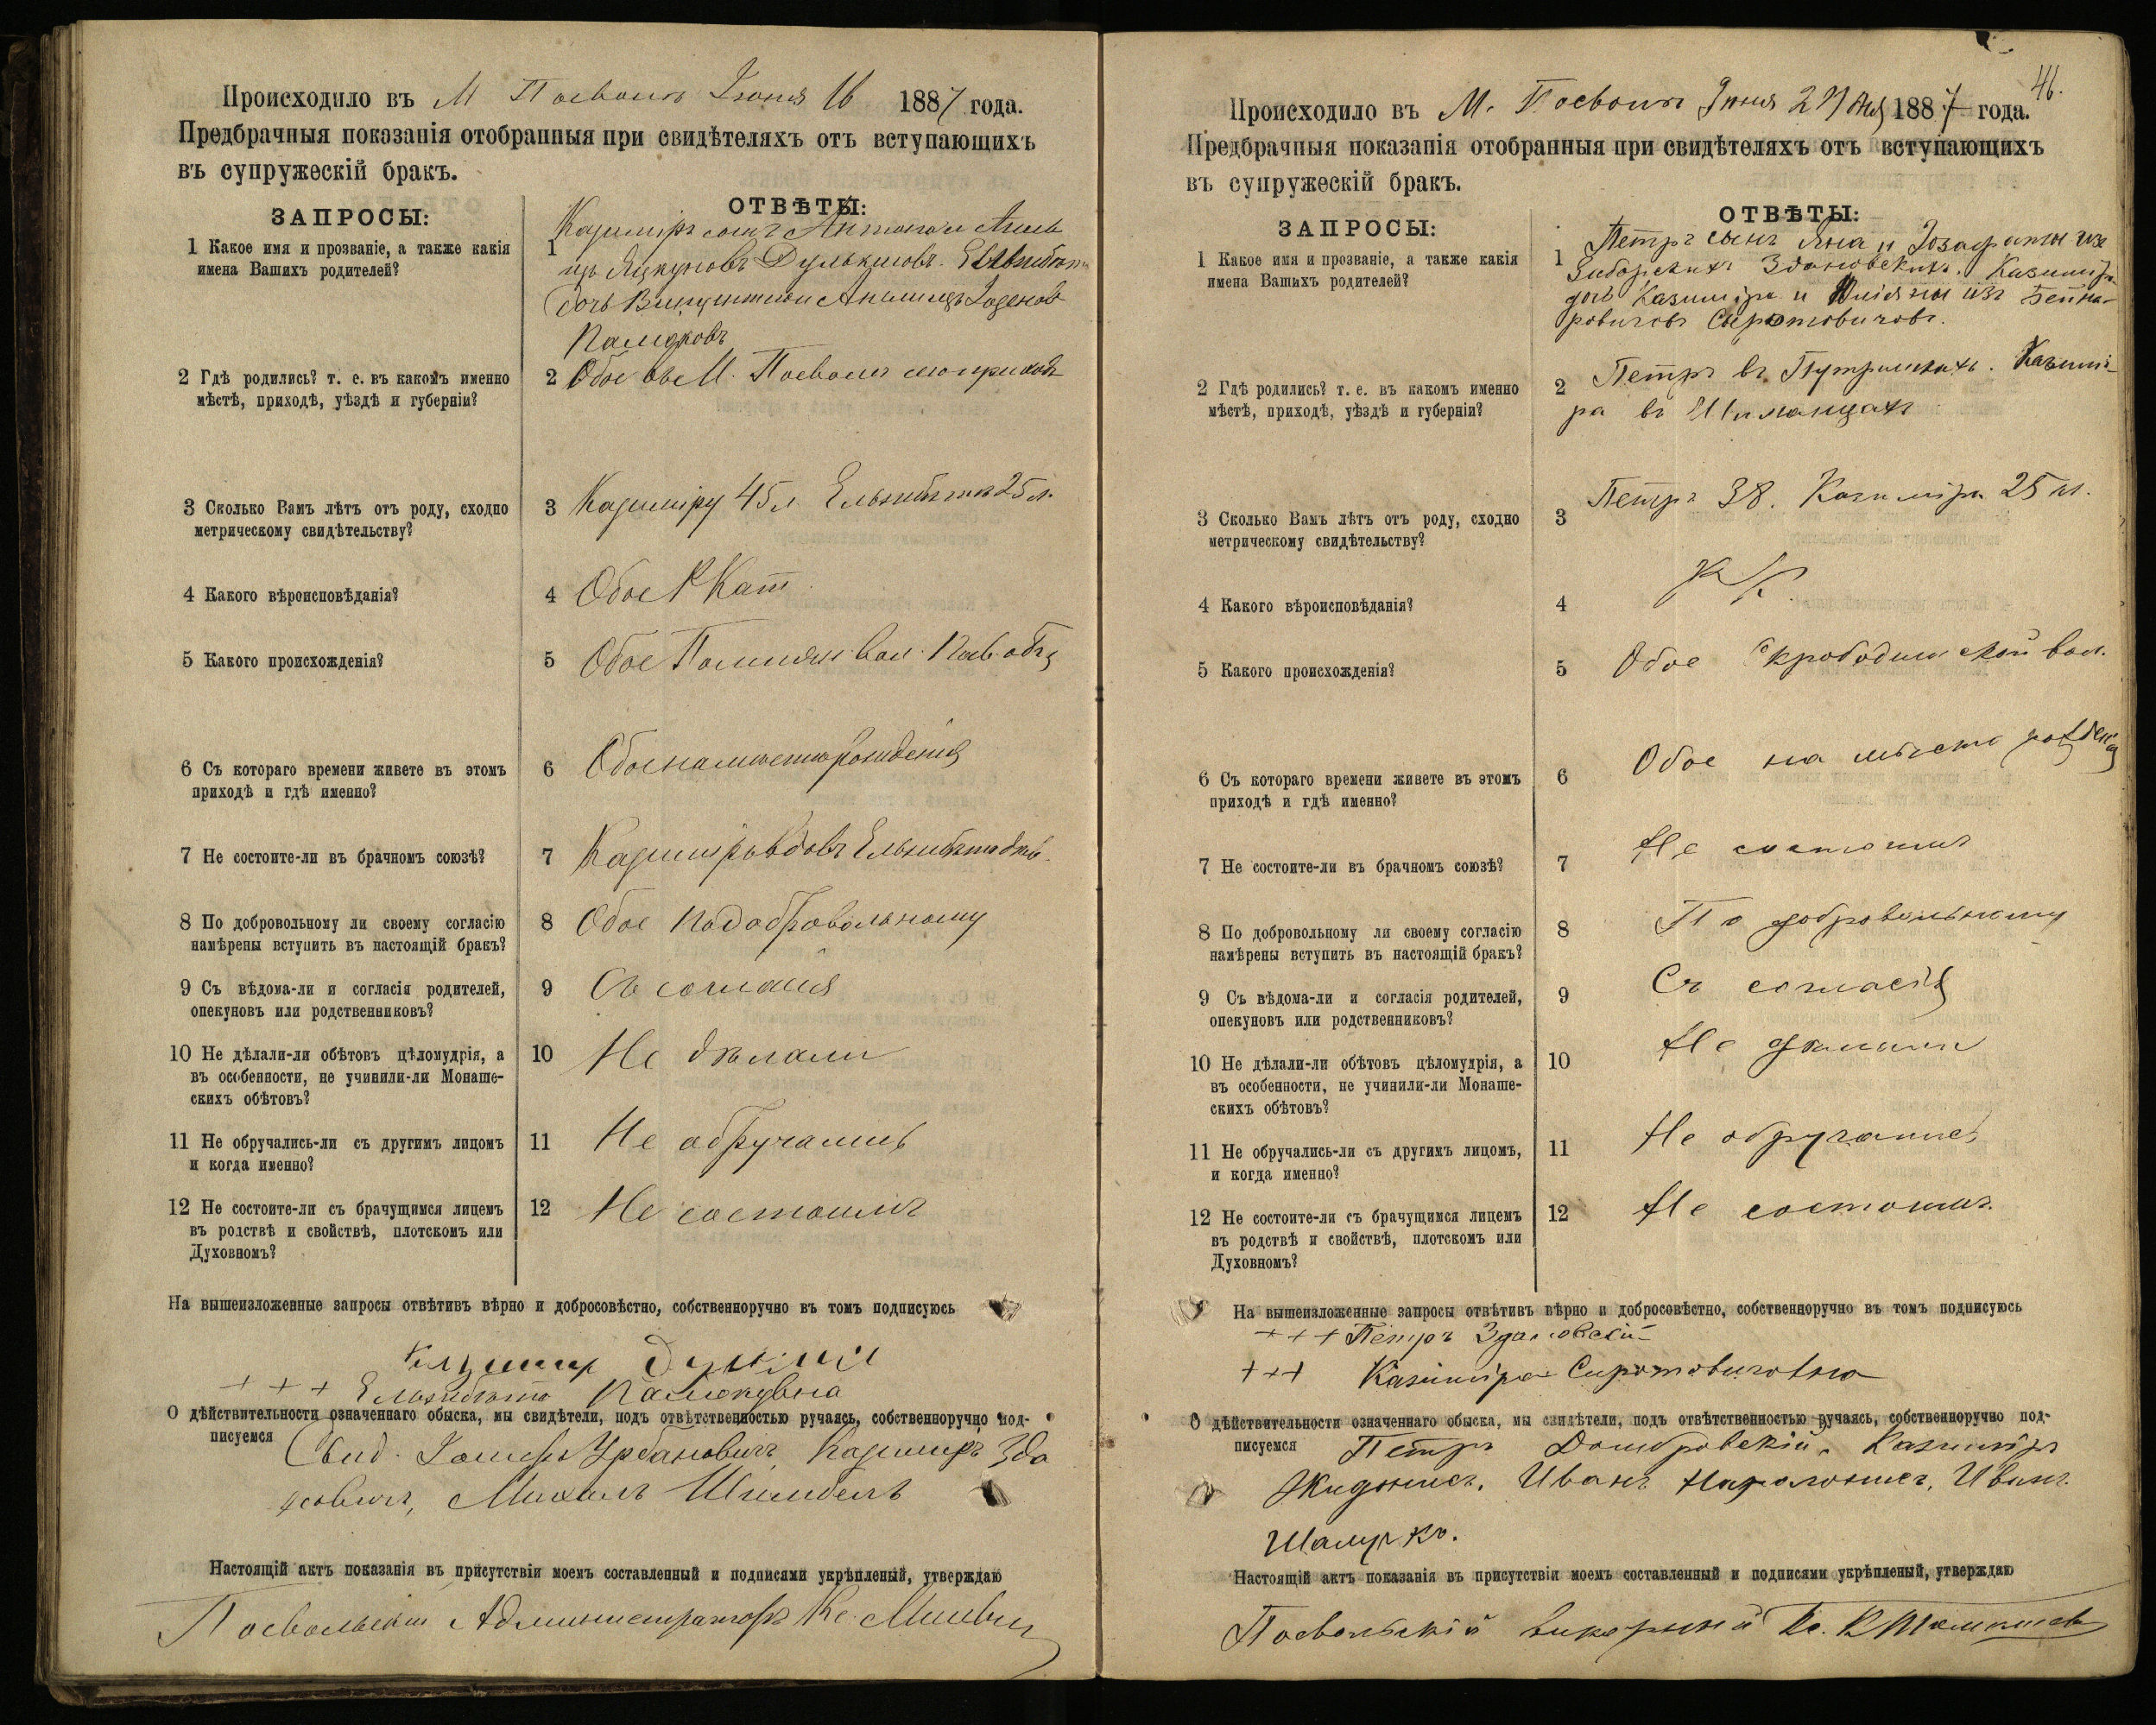 Происходило въ М Посволь Іюня 16 1887 года.
Предбрачныя показанія отобранныя при свидѣтеляхъ отъ вступающихъ
въ супружескій бракъ.
ЗАПРОСЫ:
ОТВѢТЫ:
1 Какое имя и прозваніе, а также какія
имена Вашихъ родителей?
1 Казимиръ сынъ Антона и
Дулькисовъ.
Дочь
2 Гдѣ родились? т. е. въ какомъ именно
мѣстѣ, приходѣ, уѣздѣ и губерніи?
2 Обое въ М. Посволь
3 Сколько Вамъ лѣтъ отъ роду, сходно
метрическому свидѣтельству?
3 Казиміру 45 л Ельзибѣта 25 л.
4 Какого вѣроисповѣданія?
4 Обое Р Кат
5 Какого происхожденія?
5 Обое вол.
6 Съ котораго времени живете въ этомъ
приходѣ и гдѣ именно?
6 Обое на мѣстѣ рожденія
7 Не состоите-ли въ брачномъ союзѣ?
7 Казиміръ вдовъ Ельзибѣта
8 По добровольному ли своему согласію
намѣрены вступить въ настоящій бракъ?
8 Обое по добровольному
9 Съ вѣдома-ли и согласія родителей,
опекуновъ или родственниковъ?
9 Съ согласія
10 Не дѣлали-ли обѣтовъ цѣломудрія, а
въ особенности, не учинили-ли Монаше-
скихъ обѣтовъ?
10 Не дѣлали
11 Не обручались-ли съ другимъ лицомъ
и когда именно?
11 Не обручались
12 Не состоите-ли съ брачущимся лицемъ
въ родствѣ и свойствѣ, плотскомъ или
Духовномъ?
12 Не состоимъ
На вышеизложенные запросы отвѣтивъ вѣрно и добросовѣстно, собственноручно въ томъ подписуюсь
+ + + Ельзибѣта
О дѣйствительности означеннаго обыска, мы свидѣтели, подъ отвѣтственностью ручаясь, собственноручно под-
писуемся Свид. Іосифъ Урбановичъ, Казимиръ
Михаилъ
Настоящій актъ показанія въ присутствіи моемъ составленный и подписями укрѣпленый, утверждаю
Посвольскій Администраторъ Кс.
46.
Происходило въ М. Посволь Іюня 27 дня 1887 года.
Предбрачныя показанія отобранныя при свидѣтеляхъ отъ вступающихъ
въ супружескій бракъ.
ЗАПРОСЫ:
ОТВѢТЫ:
1 Какое имя и прозваніе, а также какія
имена Вашихъ родителей?
1 Петръ сынъ Яна и Іозафаты изъ
Здановскихъ. Казимира
дочь Казиміра и изъ Бейна-
ровичовъ Сыротовичовъ.
2 Гдѣ родились? т. е. въ какомъ именно
мѣстѣ, приходѣ, уѣздѣ и губерніи?
2 Петръ въ Казими-
ра въ
3 Сколько Вамъ лѣтъ отъ роду, сходно
метрическому свидѣтельству?
3 Петръ 38. Казиміра 25 л.
4 Какого вѣроисповѣданія?
4 Р К.
5 Какого происхожденія?
5 Обое Скрободишской вол.
6 Съ котораго времени живете въ этомъ
приходѣ и гдѣ именно?
6 Обое на мѣстѣ рожденія
7 Не состоите-ли въ брачномъ союзѣ?
7 Не состоимъ
8 По добровольному ли своему согласію
намѣрены вступить въ настоящій бракъ?
8 По добровольному
9 Съ вѣдома-ли и согласія родителей,
опекуновъ или родственниковъ?
9 Съ согласія
10 Не дѣлали-ли обѣтовъ цѣломудрія, а
въ особенности, не учинили-ли Монаше-
скихъ обѣтовъ?
10 Не дѣлали
11 Не обручались-ли съ другимъ лицомъ,
и когда именно?
11 Не обручались
12 Не состоите-ли съ брачущимся лицемъ
въ родствѣ и свойствѣ, плотскомъ или
Духовномъ?
12 Не состоимъ.
На вышеизложенные запросы отвѣтивъ вѣрно и добросовѣстно, собственноручно въ томъ подписуюсь
+ + + Петръ Здановскій
+ + + Казиміра Сиротовичовна
О дѣйствительности означеннаго обыска, мы свидѣтели, подъ отвѣтственностью ручаясь, собственноручно под-
писуемся Петръ Домбровскій, Казиміръ
Жидонисъ, Иванъ Иванъ
Настоящій актъ показанія въ присутствіи моемъ составленный и подписями укрѣпленый, утверждаю
Посвольскій викарный Кс.